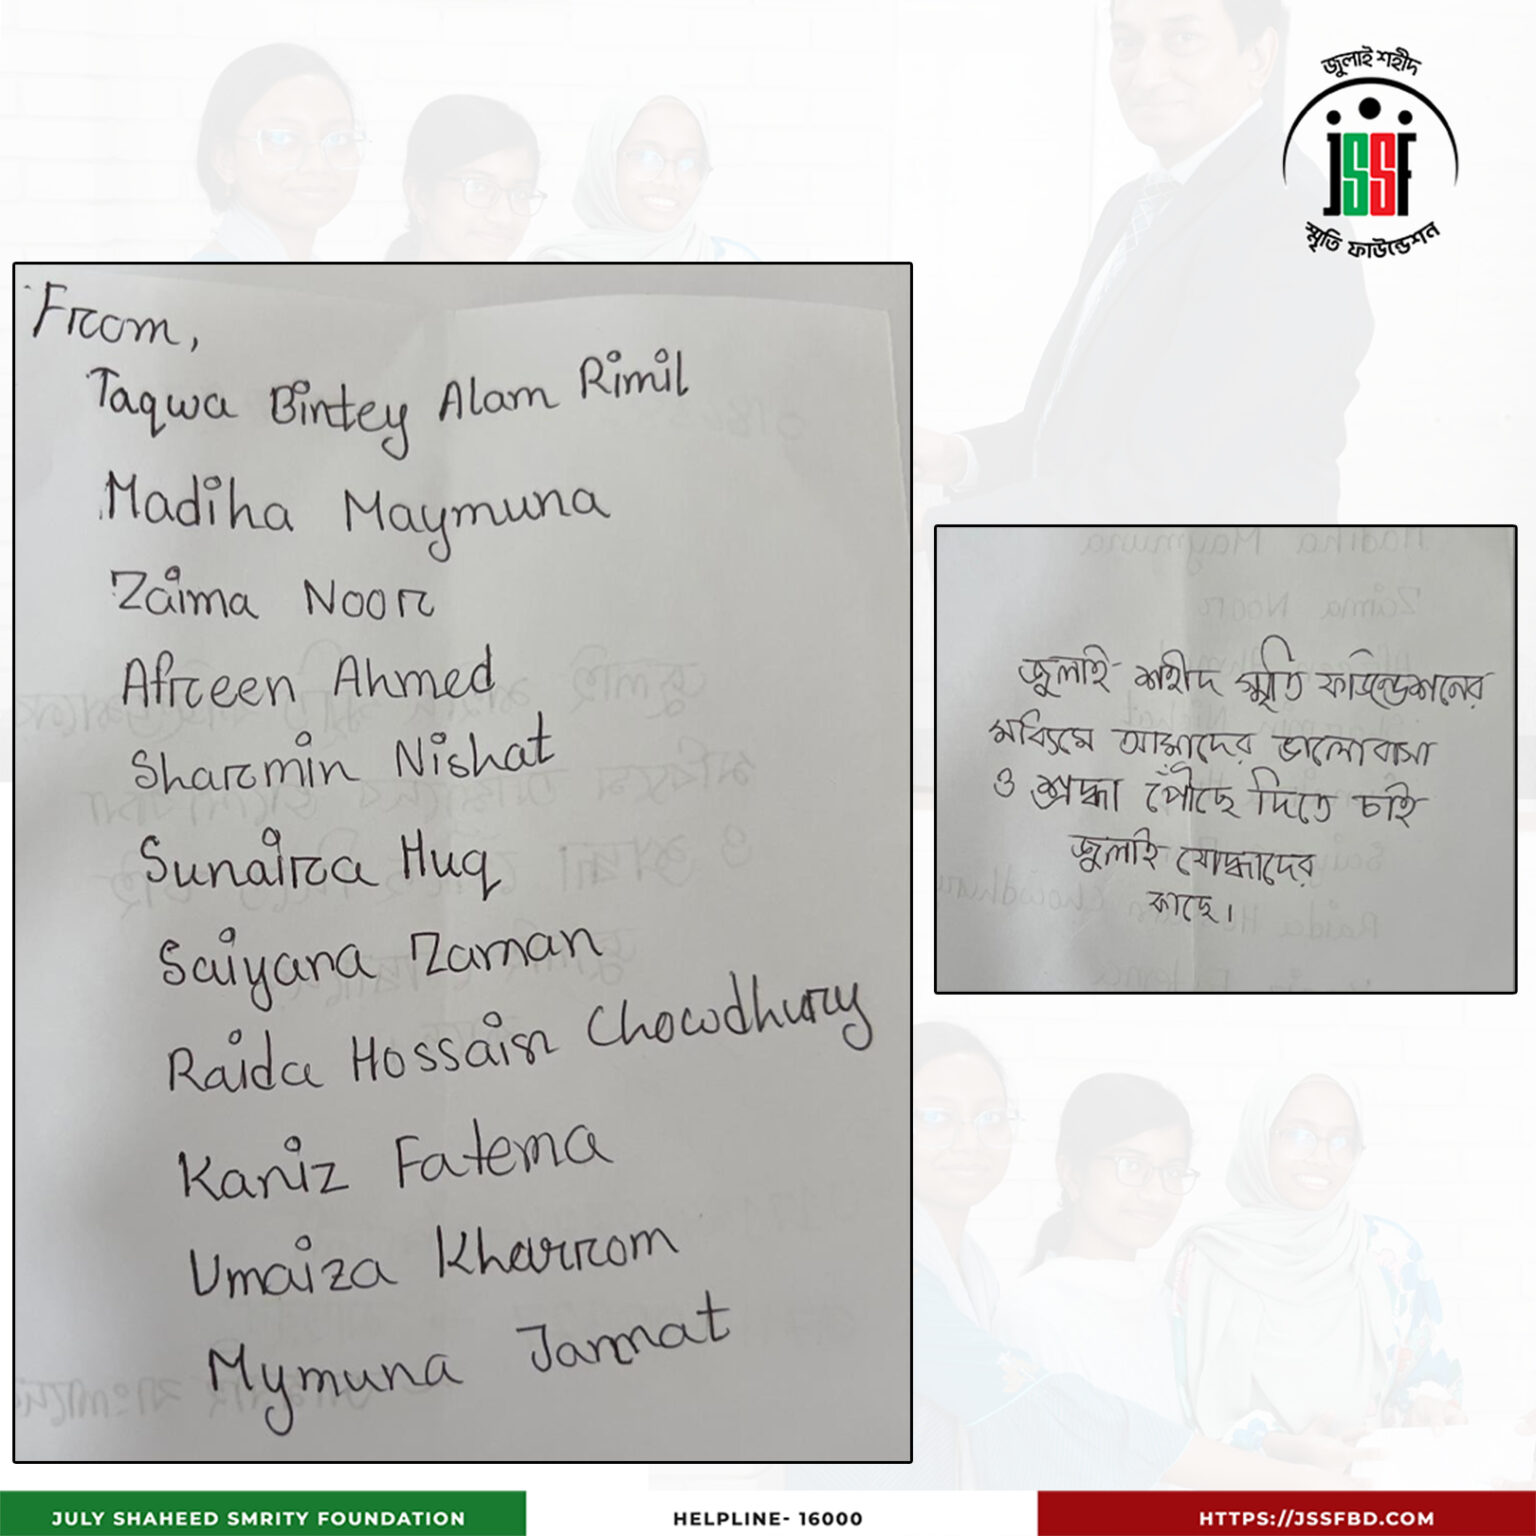 জুলাই শহীদ
JSSF
স্মৃতি ফাউন্ডেশন
From,
Taqwa Bintey Alam Rimil
Madiha Maymuna
Zaima Noor
Afreen Ahmed
Sharmin Nishat
Sunaira Huq
Saiyana Zaman
Raida Hossain Chowdhury
Kaniz Fatema
Umaiza Kharrom
Mymuna Jannat
জুলাই শহীদ স্মৃতি ফাউন্ডেশনের
মাধ্যমে আমাদের ভালোবাসা
ও শ্রদ্ধা পৌঁছে দিতে চাই
জুলাই যোদ্ধাদের
কাছে।
JULY SHAHEED SMRITY FOUNDATION
HELPLINE- 16000
HTTPS://JSSFBD.COM